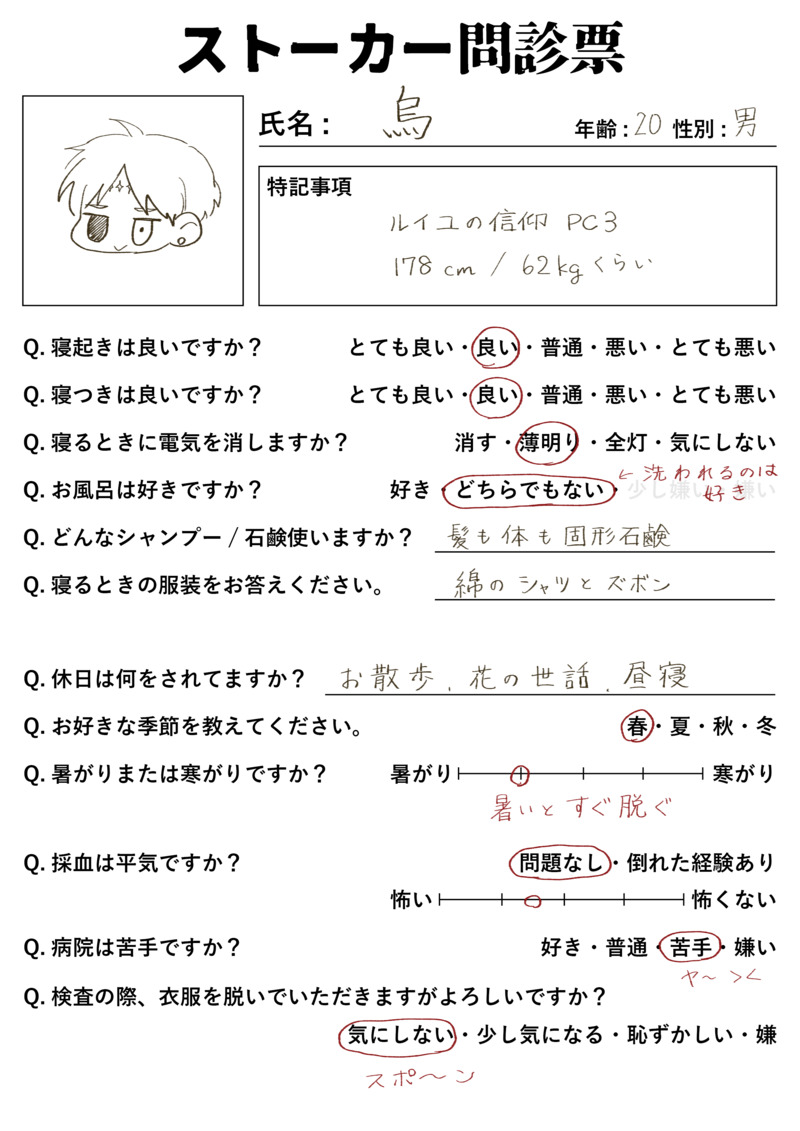 ストーカー問診票
氏名： 烏 年齢：20 性別：男
特記事項
ルイユの信仰 PC3
178cm / 62kgくらい
Q. 寝起きは良いですか？ とても良い・良い・普通・悪い・とても悪い
Q. 寝つきは良いですか？ とても良い・良い・普通・悪い・とても悪い
Q. 寝るときに電気を消しますか？ 消す・薄明り・全灯・気にしない
Q. お風呂は好きですか？ 好き・どちらでもない・少し嫌い・嫌い
← 洗われるのは
好き
Q. どんなシャンプー / 石鹸使いますか？ 髪も体も固形石鹸
Q. 寝るときの服装をお答えください。 綿のシャツとズボン
Q. 休日は何をされてますか？ お散歩、花の世話、昼寝
Q. お好きな季節を教えてください。 春・夏・秋・冬
Q. 暑がりまたは寒がりですか？ 暑がり 寒がり
暑いとすぐ脱ぐ
Q. 採血は平気ですか？ 問題なし・倒れた経験あり
怖い 怖くない
Q. 病院は苦手ですか？ 好き・普通・苦手・嫌い
ヤ〜 ><
Q. 検査の際、衣服を脱いでいただきますがよろしいですか？
気にしない・少し気になる・恥ずかしい・嫌
スポ〜ン